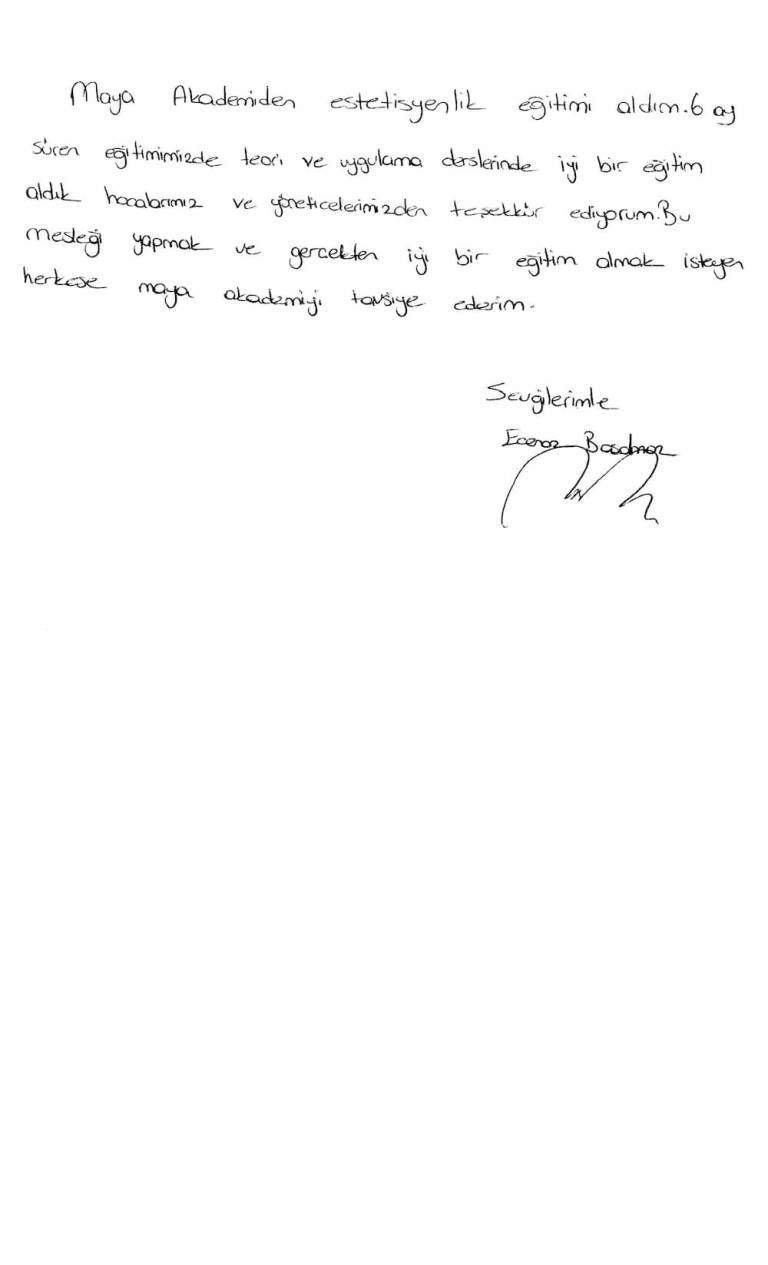 Maya Akademiden estetisyenlik eğitimi aldım.6 ay
süren eğitimimizde teori ve uygulama derslerinde iyi bir eğitim
aldık hocalarımız ve yöneticelerimizden teşekkür ediyorum.Bu
mesleği yapmak ve gercekten iyi bir eğitim almak isteyen
herkese maya akademiyi tavsiye ederim.
Sevgilerimle